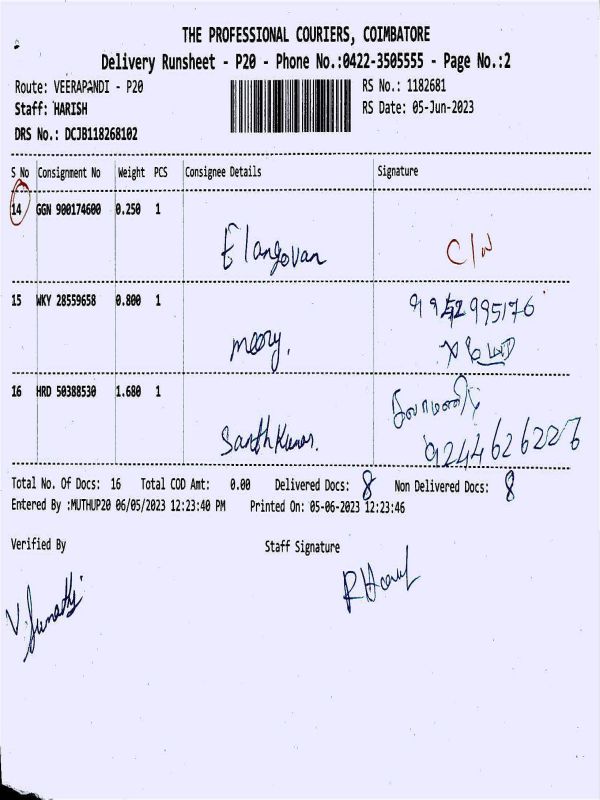 THE PROFESSIONAL COURIERS, COIMBATORE
Delivery Runsheet - P20 - Phone No.:0422-3505555 - Page No.:2
Route: VEERAPANDI - P20 RS No.: 1182681
Staff: HARISH RS Date: 05-Jun-2023
DRS No.: DCJB118268102
S No Consignment No Weight PCS Consignee Details Signature
14 GGN 900174600 0.250 1
Elangovan C/N
15 WKY 28559658 0.800 1
16 HRD 50388530 1.680 1
9244626226
Total No. Of Docs: 16 Total COD Amt: 0.00 Delivered Docs: 8 Non Delivered Docs: 8
Entered By :MUTHUP20 06/05/2023 12:23:40 PM Printed On: 05-06-2023 12:23:46
Verified By Staff Signature